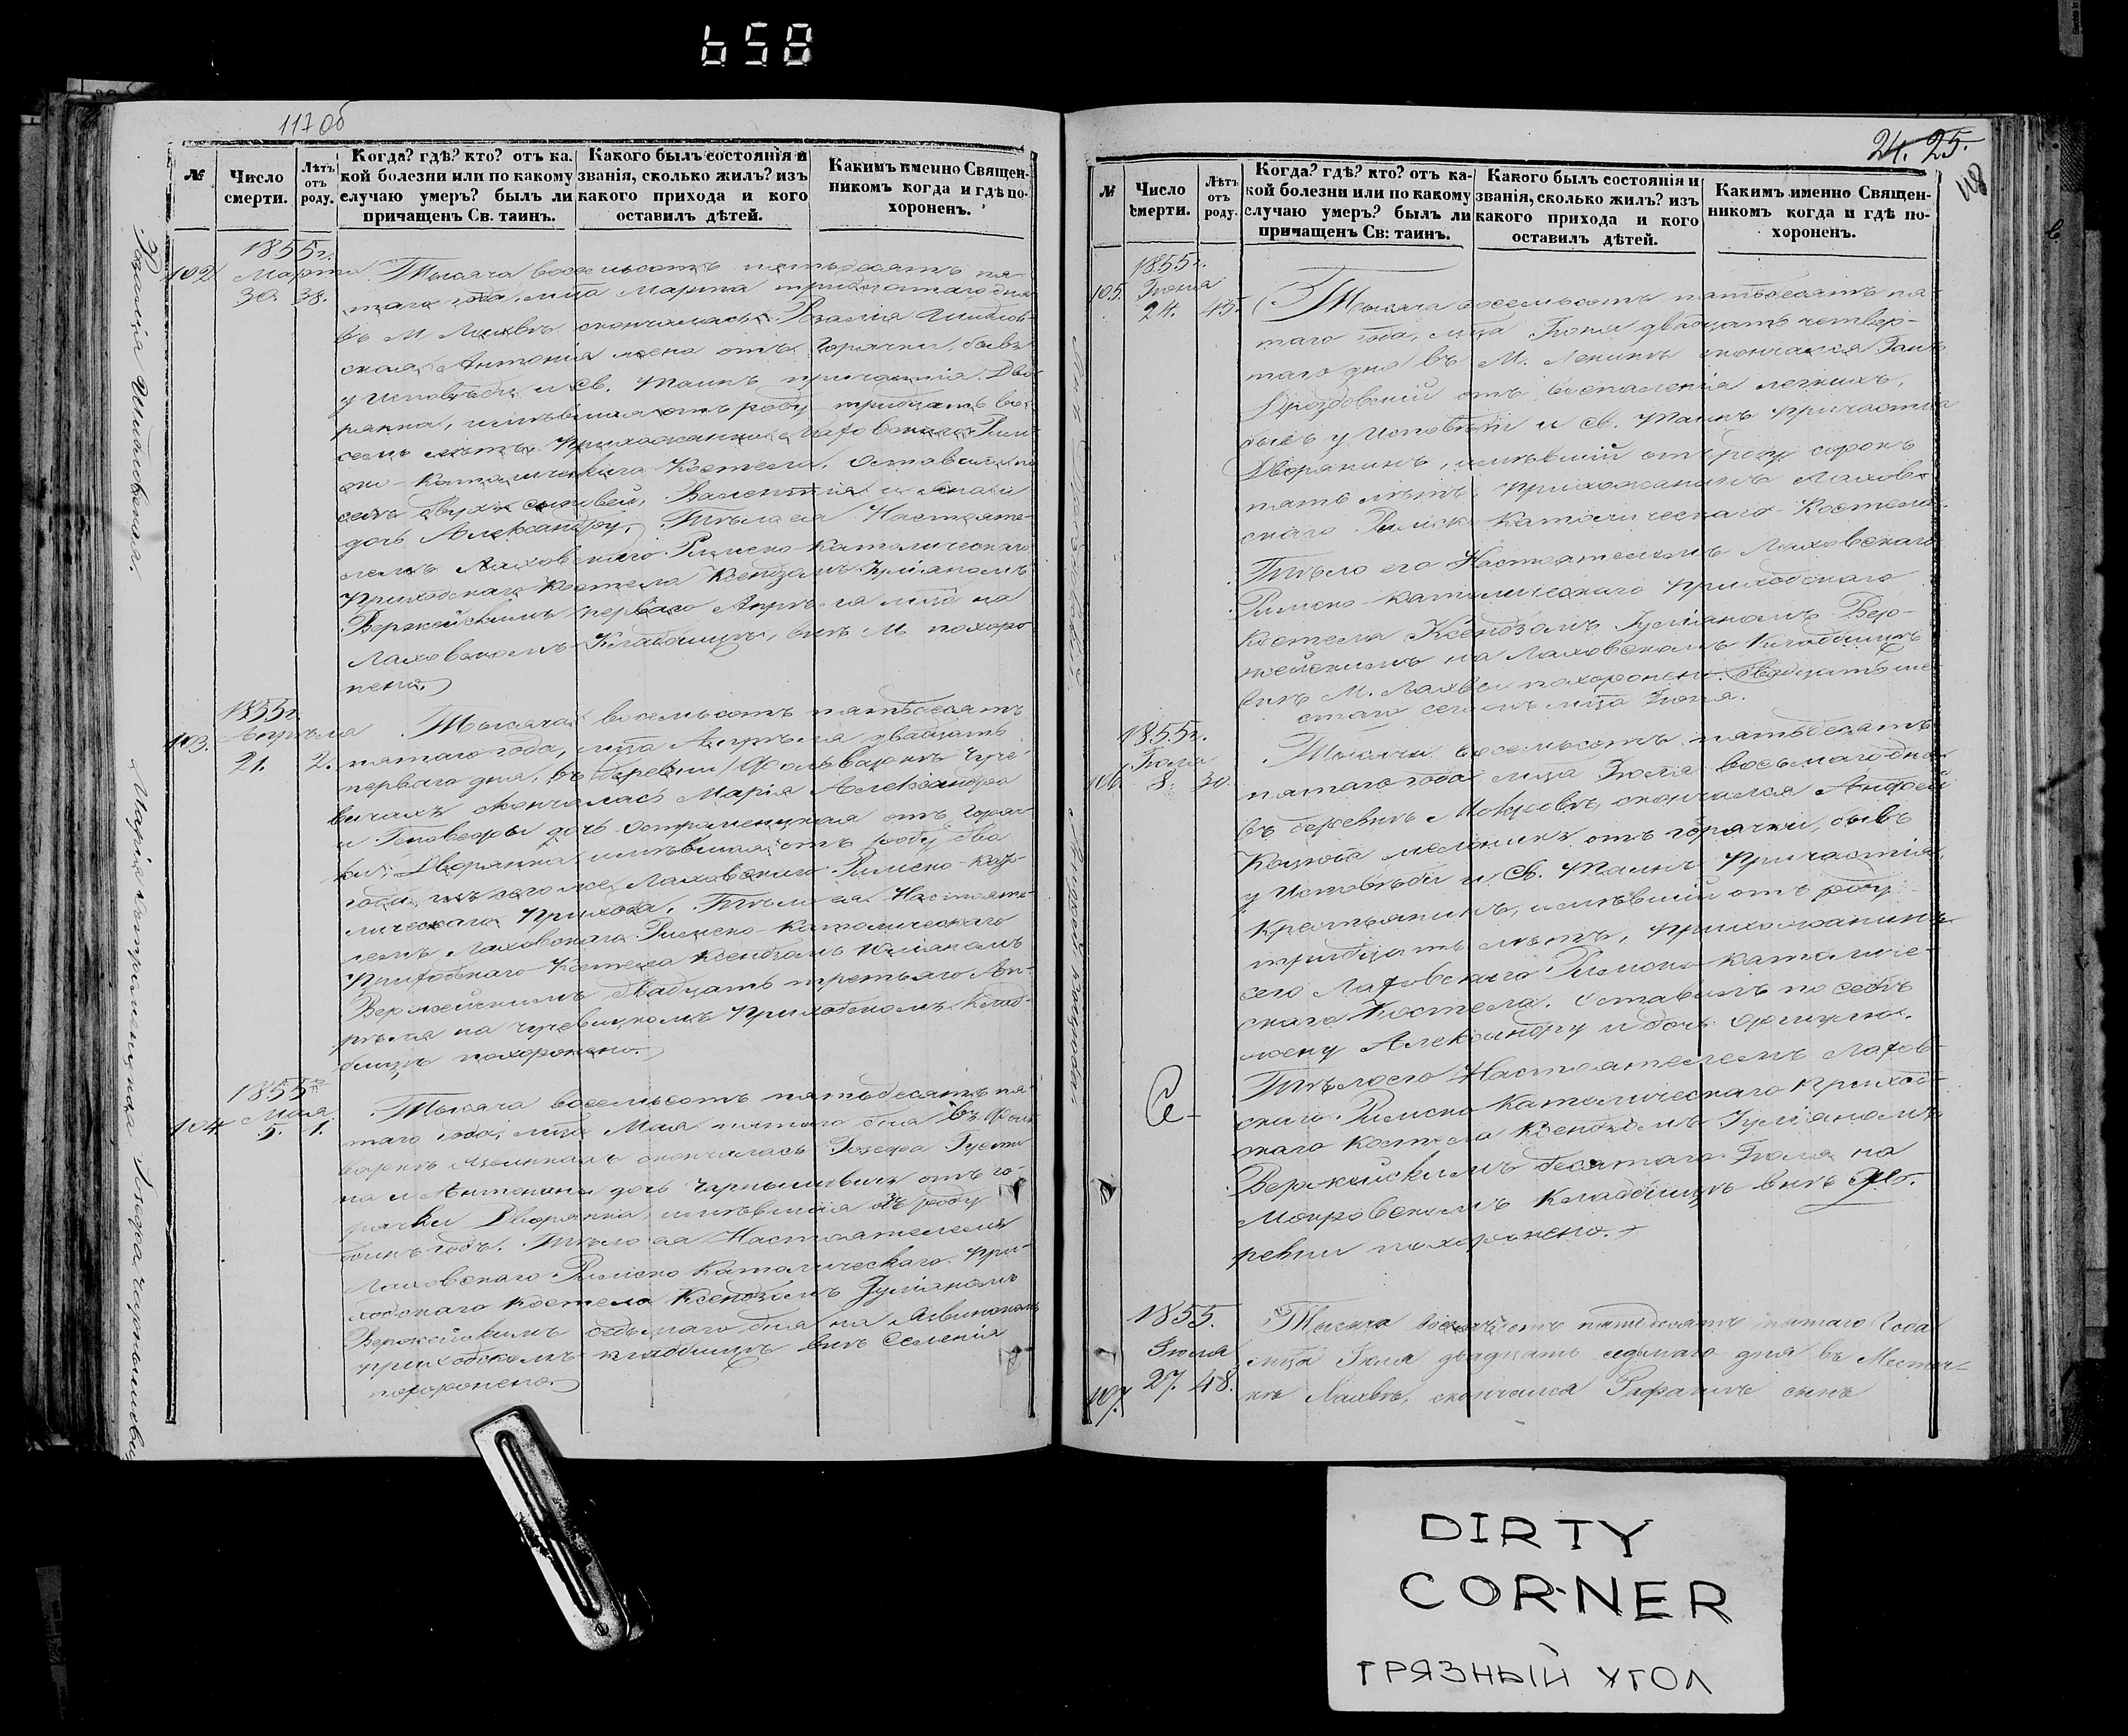 858
117 об
№
Число смерти.
Лѣтъ отъ роду.
Когда? гдѣ? кто? отъ ка-
кой болезни или по какому
случаю умеръ? былъ ли
причащенъ Св. таинъ.
Какого былъ состоянія и
званія, сколько жилъ? изъ
какого прихода и кого
оставилъ дѣтей.
Какимъ именно Священ-
никомъ когда и гдѣ по-
хороненъ.
102
1855 г.
Марта
30. 38.
Тысяча восемьсотъ пятьдесятъ пя-
таго года, мца Марта тридцатаго дня
въ М Лахвѣ скончалась Розалія
ская Антонія жена отъ горячки, бывъ
у Исповѣди и Св. Таинъ причастія. Дво-
рянка, имѣвшая отъ роду тридцать во-
семь лѣтъ, прихожанка Лаховскаго Рим
ско-Католическаго Костела. Оставила по
себѣ двухъ сыновей, и
дочь Александру. Тѣло ея Настояте-
лемъ Лаховскаго Римско-Католическаго
приходскаго Костела Ксендзомъ Іуліаномъ
Вержейскимъ перваго Апрѣля мца на
Лаховскомъ Кладбищѣ, внѣ М. похоро
нено.
103.
1855 г.
Апрѣля
21. 2.
Тысяча восемьсотъ пятьдесятъ
пятаго года, мца Апрѣля двадцать
перваго дня, въ деревни/Фольваркѣ Чуче-
вичахъ скончалась Марія Александра
и Геновефы дочь Островмецкая отъ горяч-
ки. Дворянка имѣвшая отъ роду два
года, изъ того же Лаховскаго Римско-Като-
лическаго прихода. Тѣло ея Настояте-
лемъ Лаховскаго Римско-Католическаго
Приходскаго Костела Ксендзомъ Юліаномъ
Вержейскимъ двадцать третьяго Ап-
рѣля на Чучевицкомъ Приходскомъ Клад-
бищѣ похоронено.
104
1855 г.
Мая
5. 1.
Тысяча восемьсотъ пятьдесятъ пя-
таго года, мца Мая пятаго дня въ Фоль
варкѣ скончалась Іозефа Густи
на и Антонины дочь отъ го-
рячки Дворянка, имѣвшая отъ роду
одинъ годъ. Тѣло ея Настоятелемъ
Лаховскаго Римско Католическаго При-
ходскаго Костела Ксендзомъ Іуліаномъ
Вержейскимъ седьмаго дня на
приходскомъ кладбищѣ внѣ Селенія
похоронено.
24. 25.
118
№
Число смерти.
Лѣтъ отъ роду.
Когда? гдѣ? кто? отъ ка-
кой болезни или по какому
случаю умеръ? былъ ли
причащенъ Св: таинъ.
Какого былъ состоянія и
званія, сколько жилъ? изъ
какого прихода и кого
оставилъ дѣтей.
Какимъ именно Священ-
никомъ когда и гдѣ по-
хороненъ.
105.
1855 г.
Іюня
24. 45.
Тысяча восемьсотъ пятьдесятъ пя-
таго года, мца Іюня двадцать четвер-
таго дня въ М. скончался Янъ
Дроздовскій отъ воспаленія легкихъ,
бывъ у Исповѣди и Св. Таинъ причастія
Дворянинъ, имѣвшій отъ роду сорокъ
пять лѣтъ, прихожанинъ Лахов-
скаго Римско Католическаго Костела.
Тѣло его Настоятелемъ Лаховскаго
Римско-католическаго приходскаго
костела Ксендзомъ Іуліаномъ Вер-
жейскимъ на Лаховскомъ Кладбищѣ
внѣ М. Лахвы похоронено двадцать ше-
стаго сего мца Іюня.
106
1855 г.
Іюля
8. 30.
Тысяча восемьсотъ пятьдесятъ
пятаго года мца Іюля восьмаго дня
въ деревнѣ Мокровѣ, скончался Андрей
мельникъ отъ горячки, бывъ
у Исповѣди и Св. Таинъ Причастія,
Крестьянинъ, имѣвшій отъ роду
тридцать лѣтъ, прихожанинъ
сего Лаховскаго Римско католиче-
скаго Костела. Оставилъ по себѣ
жену Александру и дочь
Тѣло его Настоятелемъ Лахов-
скаго Римско Католическаго приход-
скаго костела Ксендзомъ Іуліаномъ
Вержейскимъ десятаго Іюля на
Мокровскомъ Кладбищѣ внѣ де-
ревни похоронено.
107.
1855.
Іюля
27. 48.
Тысяча восемьсотъ пятьдесятъ пятаго Года
мца Іюля двадцать седьмаго дня въ Местеч-
кѣ Лахвѣ, скончался Рафаилъ сынъ
DIRTY
CORNER
ГРЯЗНЫЙ УГОЛ